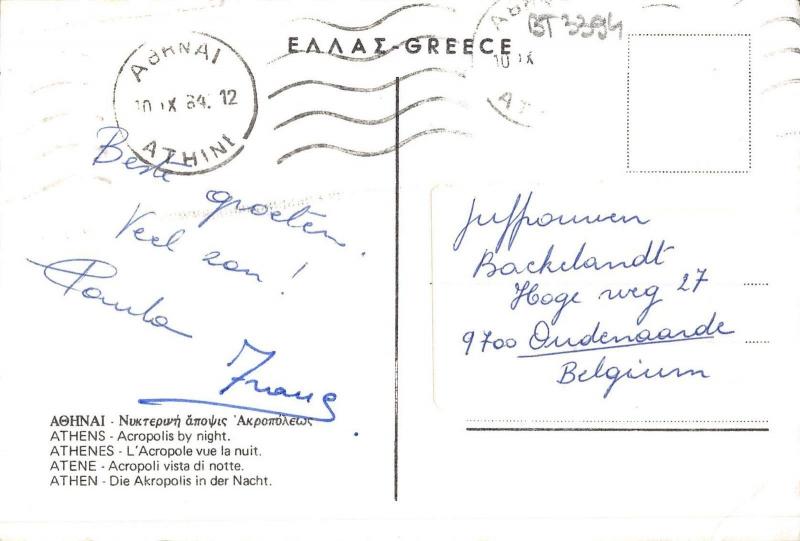 ΕΛΛΑΣ-GREECE
BT 3394
ΑΘΗΝΑΙ
10 IX 84. 12
ATHINI
10 IX
Beste
groeten.
Veel zon!
Paula
Frans.
Juffrouwen
Backelandt
Hoge weg 27
9700 Oudenaarde
Belgium
ΑΘΗΝΑΙ - Νυκτερινή ἄποψις Ἀκροπόλεως
ATHENS - Acropolis by night.
ATHENES - L'Acropole vue la nuit.
ATENE - Acropoli vista di notte.
ATHEN - Die Akropolis in der Nacht.